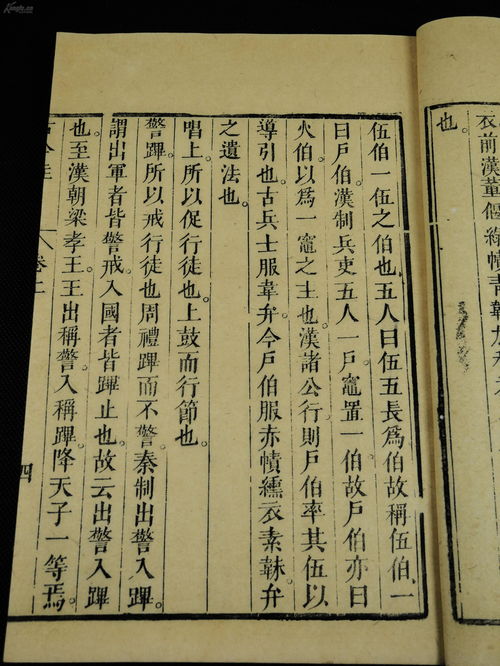 衣前漢董偃綠幘青韝
也。
伍伯一伍之伯也。五人曰伍五長爲伯故稱伍伯一
曰戶伯漢制兵吏五人一戶竈置一伯故戶伯亦曰
火伯以爲一竈之主也。漢諸公行則戶伯率其伍以
導引也。古兵士服韋弁今戶伯服赤幘纁衣素韎弁
之遺法也。
唱上所以促行徒也。上鼓而行節也。
警蹕所以戒行徒也。周禮蹕而不警秦制出警入蹕
謂出軍者皆警戒入國者皆蹕止也。故云出警入蹕
也。至漢朝梁孝王。王出稱警。入稱蹕。降天子一等焉。
古今注
卷上
四